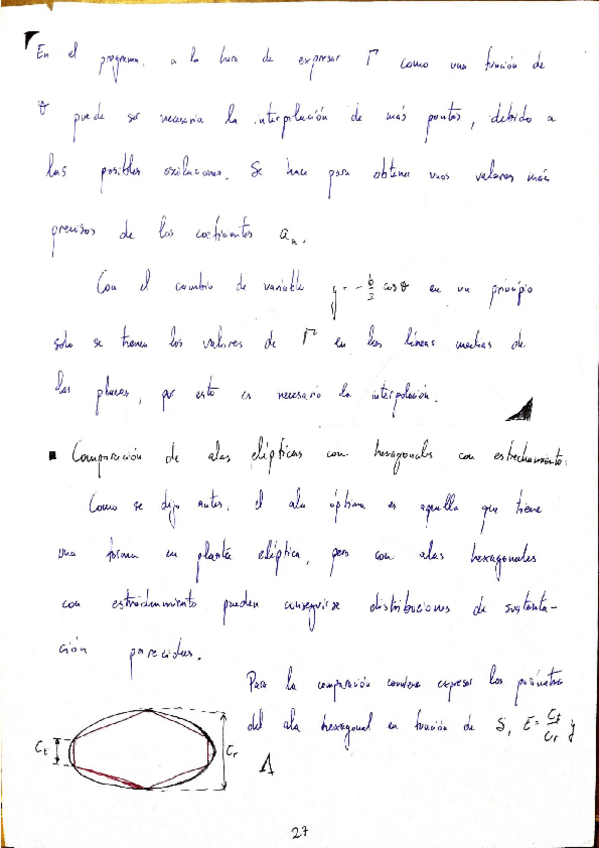 En el programa, a la hora de expresar Γ como una función de
θ puede ser necesaria la interpolación de más puntos, debido a
las posibles oscilaciones. Se hace para obtener unos valores más
precisos de los coeficientes aₙ.
Con el cambio de variable y = -b/2 cos θ en un principio
solo se tienen los valores de Γ en las líneas medias de
las placas, por esto es necesario la interpolación.
▪ Comparación de alas elípticas con hexagonales con estrechamiento:
Como se dijo antes, el ala óptima es aquella que tiene
una forma en planta elíptica, pero con alas hexagonales
con estrechamiento pueden conseguirse distribuciones de sustenta-
ción parecidas.
Para la comparación conviene expresar los parámetros
del ala hexagonal en función de S, E = Ct/Cr y
Λ
Ct
Cr
27